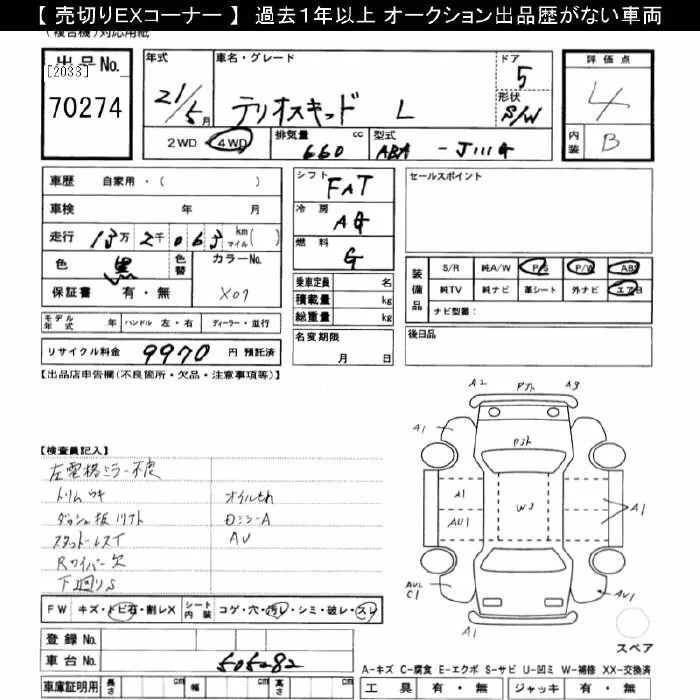 【 売切りEXコーナー 】 過去1年以上 オークション出品歴がない車両
(複合機)対応用紙
出品No.
[2033]
70274
年式 21/5月
車名・グレード テリオスキッド L
ドア 5
形状 S/W
評価点 4
内装 B
2WD・4WD
排気量 660 cc
型式 ABA - J111G
車歴 自家用・( )
車検 年 月
走行 13万 2千 0 6 3 km マイル ( )
色 黒 色替
カラーNo. X07
保証書 有・無
モデル年式 年 ハンドル 左・右 ディーラー・並行
リサイクル料金 9970 円 預託済
シフト FAT
冷房 AC
燃料 G
乗車定員 名
積載量 kg
総重量 kg
名変期限 月 日
セールスポイント
装備品
S/R 純A/W P/S P/W ABS
純TV 純ナビ 革シート 外ナビ エアB
ナビ型番:
後日品
【出品店申告欄(不良箇所・欠品・注意事項等)】
【検査員記入】
左電格ミラー不良
トリムウキ オイルもれ
ダッシュ板リフト DミラーA
スタッドレスT AU
Rワイパー欠
下回りS
FW キズ・トビ石・割レX シート内装 コゲ・穴・汚レ・シミ・破レ・スレ
登録No.
車台No. 505282
車庫証明用 長さ cm 幅 cm 高さ cm
A2 Pｽﾚ A3
A1
Pｽﾚ
A1 W3
AU1 A1
AU2 C1
AU1
A1
スペア
A-キズ C-腐食 E-エクボ S-サビ U-凹ミ W-補修 XX-交換済
工具 有・無 ジャッキ 有・無